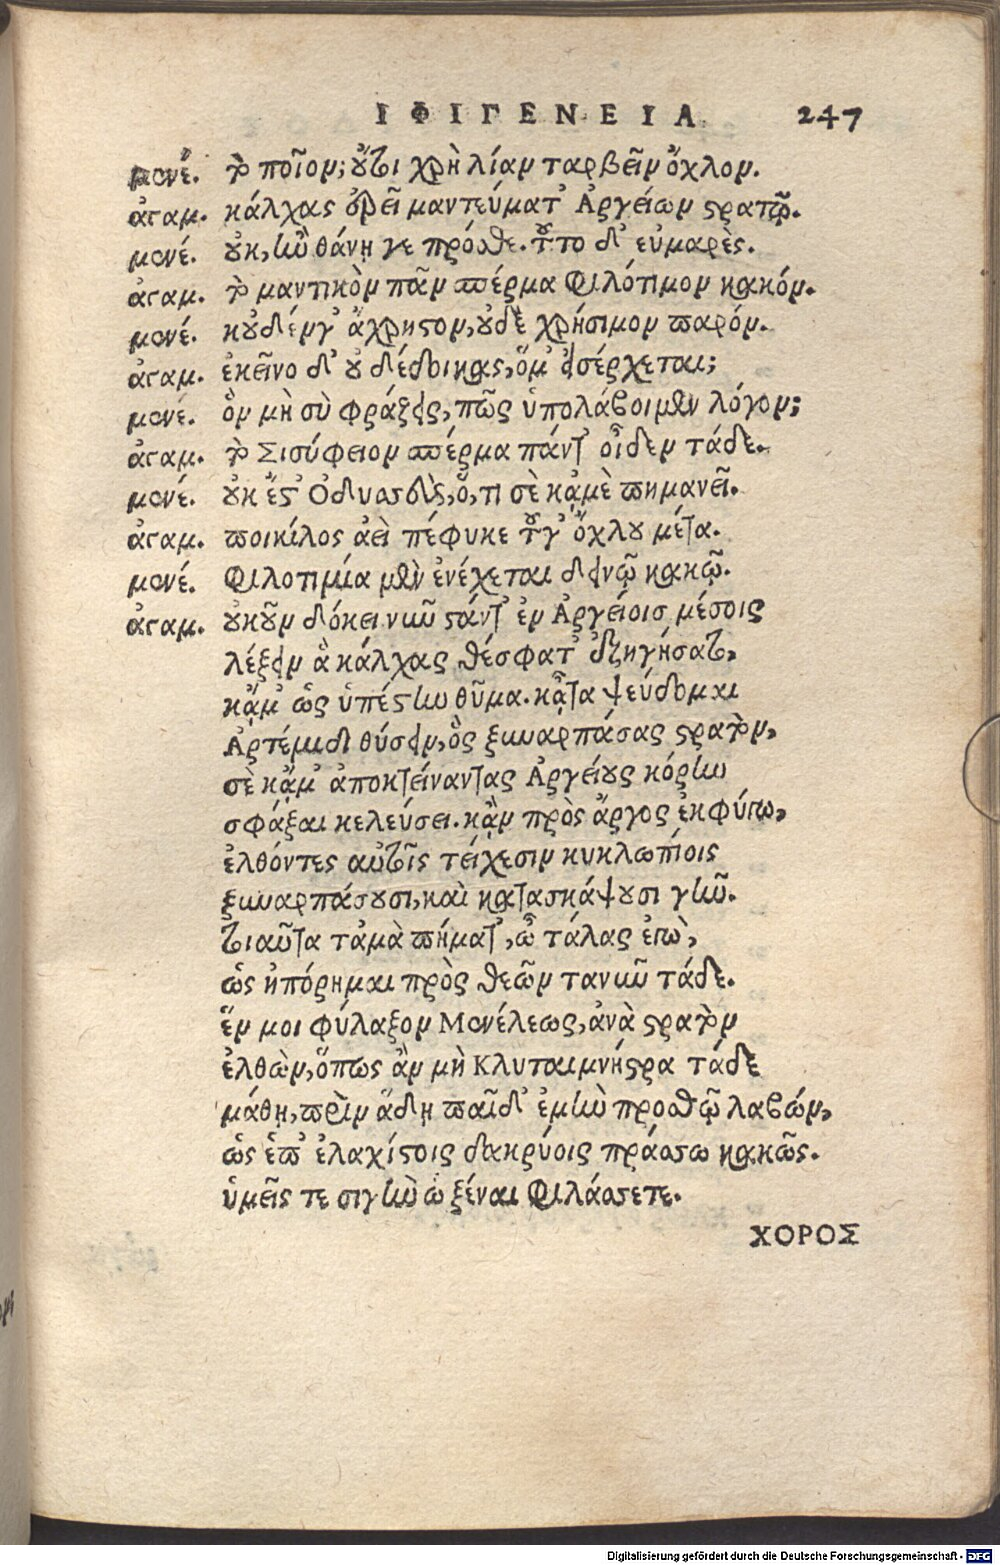 ΙΦΙΓΕΝΕΙΑ 247
μενέ. τὸ ποῖον; οὔτοι χρὴ λίαν ταρβεῖν ὄχλον.
ἀγαμ. κάλχας ἐρεῖ μαντεύματ' Ἀργείων στρατῷ.
μενέ. οὐκ, ἢν θάνῃ γε πρόσθε. τοῦτο δ' εὐμαρὲς.
ἀγαμ. τὸ μαντικὸν πᾶν σπέρμα φιλότιμον κακόν.
μενέ. κοὐδέν γ' ἄχρηστον, οὐδὲ χρήσιμον παρόν.
ἀγαμ. ἐκεῖνο δ' οὐ δέδοικας, ὅμ' εἰσέρχεται;
μενέ. ὃν μὴ σὺ φράζεις, πῶς ὑπολάβοιμεν λόγον;
ἀγαμ. τὸ Σισύφειον σπέρμα πάντ' οἶδεν τάδε.
μενέ. οὐκ ἔστ' Ὀδυσσεὺς, ὅ, τι σὲ κἀμὲ πημανεῖ.
ἀγαμ. ποικίλος ἀεὶ πέφυκε τοῦ γ' ὄχλου μέτα.
μενέ. φιλοτιμία μὲν ἐνέχεται δεινῷ κακῷ.
ἀγαμ. οὐκοῦν δόκει νιῦ στάντ' ἐν Ἀργείοις μέσοις
λέξειν ἃ κάλχας θέσφατ' ἐξηγήσατο,
κᾄμ' ὡς ὑπέστην θῦμα. κᾆτα ψεύδομαι
Ἀρτέμιδι θύσειν, ὃς ξυναρπάσας στρατὸν,
σὲ κᾄμ' ἀποκτείναντας Ἀργείους κόρην
σφάξαι κελεύσει. κἂν πρὸς ἄργος ἐκφύγω,
ἐλθόντες αὐτοῖς τείχεσιν κυκλωπίοις
ξυναρπάσουσι, καὶ κατασκάψουσι γῆν.
τοιαῦτα τἀμὰ πήματ', ὦ τάλας ἐγὼ,
ὡς ἠπόρημαι πρὸς θεῶν τανῦν τάδε.
ἕν μοι φύλαξον Μενέλεως, ἀνὰ στρατὸν
ἐλθὼν, ὅπως ἂν μὴ Κλυταιμνήστρα τάδε
μάθῃ, πρὶν ἅδῃ παῖδ' ἐμὴν προσθῶ λαβών,
ὡς ἐπ' ἐλαχίστοις δακρύοις πράσσω κακῶς.
ὑμεῖς τε σιγὴν ὦ ξέναι φυλάσσετε.
ΧΟΡΟΣ
Digitalisierung gefördert durch die Deutsche Forschungsgemeinschaft - DFG